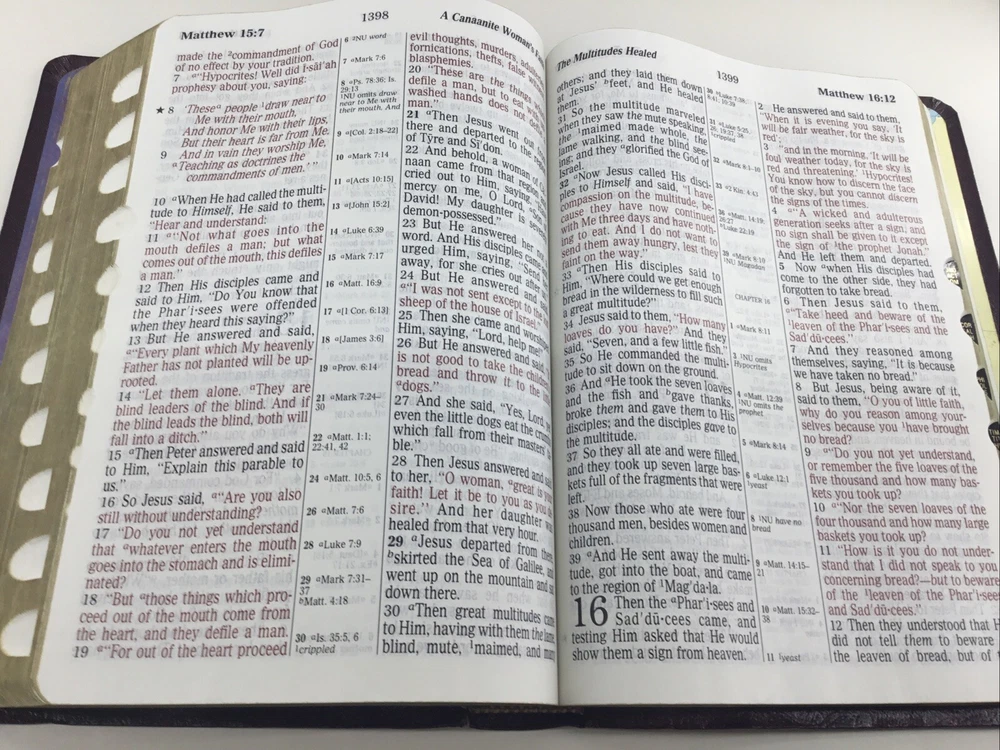 Matthew 15:7
1398
A Canaanite Woman's
made the ²commandment of God
of no effect by your tradition.
7 ᵃ"Hypocrites! Well did I·sāi´ah
prophesy about you, saying:
★ 8 'Theseᵃ people ¹draw near to
Me with their mouth,
And honor Me with their lips,
But their heart is far from Me.
9 And in vain they worship Me,
ᵃTeaching as doctrines the
commandments of men.' "
10 ᵃWhen He had called the multi-
tude to Himself, He said to them,
"Hear and understand:
11 ᵃ"Not what goes into the
mouth defiles a man; but what
comes out of the mouth, this defiles
a man."
12 Then His disciples came and
said to Him, "Do You know that
the Phar´i·sees were offended
when they heard this saying?"
13 But He answered and said,
ᵃ"Every plant which My heavenly
Father has not planted will be up-
rooted.
14 "Let them alone. ᵃThey are
blind leaders of the blind. And if
the blind leads the blind, both will
fall into a ditch."
15 ᵃThen Peter answered and said
to Him, "Explain this parable to
us."
16 So Jesus said, ᵃ"Are you also
still without understanding?
17 "Do you not yet understand
that ᵃwhatever enters the mouth
goes into the stomach and is elimi-
nated?
18 "But ᵃthose things which pro-
ceed out of the mouth come from
the heart, and they defile a man.
19 ᵃ"For out of the heart proceed
6 ²NU word
7 ᵃMark 7:6
8 ᵃPs. 78:36; Is.
29:13
¹NU omits draw
near to Me with
their mouth, And
9 ᵃ[Col. 2:18–22]
10 ᵃMark 7:14
11 ᵃ[Acts 10:15]
13 ᵃ[John 15:2]
14 ᵃLuke 6:39
15 ᵃMark 7:17
16 ᵃMatt. 16:9
17 ᵃ[1 Cor. 6:13]
18 ᵃ[James 3:6]
19 ᵃProv. 6:14
21 ᵃMark 7:24–
30
22 ᵃMatt. 1:1;
22:41, 42
24 ᵃMatt. 10:5, 6
26 ᵃMatt. 7:6
28 ᵃLuke 7:9
29 ᵃMark 7:31–
37
ᵇMatt. 4:18
30 ᵃIs. 35:5, 6
¹crippled
evil thoughts, murders,
fornications, thefts, false
blasphemies.
20 "These are the things
defile a man, but to eat
washed hands does not
man."
21 ᵃThen Jesus went out
there and departed to the
of Tȳre and Sī´don.
22 And behold, a woman of
naan came from that region
cried out to Him, saying,
mercy on me, O Lord,
David! My daughter is
demon-possessed."
23 But He answered her
word. And His disciples
urged Him, saying, "Send
away, for she cries out
24 But He answered and
ᵃ"I was not sent except to the
sheep of the house of Israel."
25 Then she came and worshiped
Him, saying, "Lord, help me!"
26 But He answered and said,
is not good to take the children's
bread and throw it to the
ᵃdogs."
27 And she said, "Yes, Lord,
even the little dogs eat the crumbs
which fall from their masters'
ble."
28 Then Jesus answered and said
to her, "O woman, ᵃgreat is your
faith! Let it be to you as you de-
sire." And her daughter was
healed from that very hour.
29 ᵃJesus departed from there,
ᵇskirted the Sea of Galilee, and
went up on the mountain and sat
down there.
30 ᵃThen great multitudes came
to Him, having with them the lame,
blind, mute, ¹maimed, and many
The Multitudes Healed
1399
Matthew 16:12
others; and they laid them down
at Jesus' ᵇfeet, and He healed
them.
31 So the multitude marveled
when they saw the mute speaking,
the ¹maimed made whole, the
lame walking, and the blind see-
ing; and they ᵃglorified the God of
Israel.
32 ᵃNow Jesus called His disci-
ples to Himself and said, "I have
compassion on the multitude, be-
cause they have now continued
with Me three days and have noth-
ing to eat. And I do not want to
send them away hungry, lest they
faint on the way."
33 ᵃThen His disciples said to
Him, "Where could we get enough
bread in the wilderness to fill such
a great multitude?"
34 Jesus said to them, "How many
loaves do you have?" And they
said, "Seven, and a few little fish."
35 So He commanded the multi-
tude to sit down on the ground.
36 And ᵃHe took the seven loaves
and the fish and ᵇgave thanks,
broke them and gave them to His
disciples; and the disciples gave to
the multitude.
37 So they all ate and were filled,
and they took up seven large bas-
kets full of the fragments that were
left.
38 Now those who ate were four
thousand men, besides women and
children.
39 ᵃAnd He sent away the multi-
tude, got into the boat, and came
to the region of ¹Mag´da·la.
16 Then the ᵃPhar´i·sees and
Sad´dū·cees came, and
testing Him asked that He would
show them a sign from heaven.
32 ᵃMark 8:1–10
33 ᵃ2 Kin. 4:43
36 ᵃMatt. 14:19;
26:27
ᵇLuke 22:19
39 ᵃMark 8:10
¹NU Magadan
CHAPTER 16
1 ᵃMark 8:11
3 ¹NU omits
Hypocrites
4 ᵃMatt. 12:39
¹NU omits the
prophet
5 ᵃMark 8:14
6 ᵃLuke 12:1
¹yeast
8 ¹NU have no
bread
9 ᵃMatt. 14:15–
21
10 ᵃMatt. 15:32–
38
11 ¹yeast
2 He answered and said to them,
"When it is evening you say, 'It
will be fair weather, for the sky is
red';
3 "and in the morning, 'It will be
foul weather today, for the sky is
red and threatening.' ¹Hypocrites!
You know how to discern the face
of the sky, but you cannot discern
the signs of the times.
4 ᵃ"A wicked and adulterous
generation seeks after a sign, and
no sign shall be given to it except
the sign of ¹the prophet Jonah."
And He left them and departed.
5 Now ᵃwhen His disciples had
come to the other side, they had
forgotten to take bread.
6 Then Jesus said to them,
ᵃ"Take heed and beware of the
¹leaven of the Phar´i·sees and the
Sad´dū·cees."
7 And they reasoned among
themselves, saying, "It is because
we have taken no bread."
8 But Jesus, being aware of it,
said to them, "O you of little faith,
why do you reason among your-
selves because you ¹have brought
no bread?
9 ᵃ"Do you not yet understand,
or remember the five loaves of the
five thousand and how many bas-
kets you took up?
10 ᵃ"Nor the seven loaves of the
four thousand and how many large
baskets you took up?
11 "How is it you do not under-
stand that I did not speak to you
concerning bread?—but to beware
of the ¹leaven of the Phar´i·sees
and Sad´dū·cees."
12 Then they understood that H
did not tell them to beware
the leaven of bread, but of